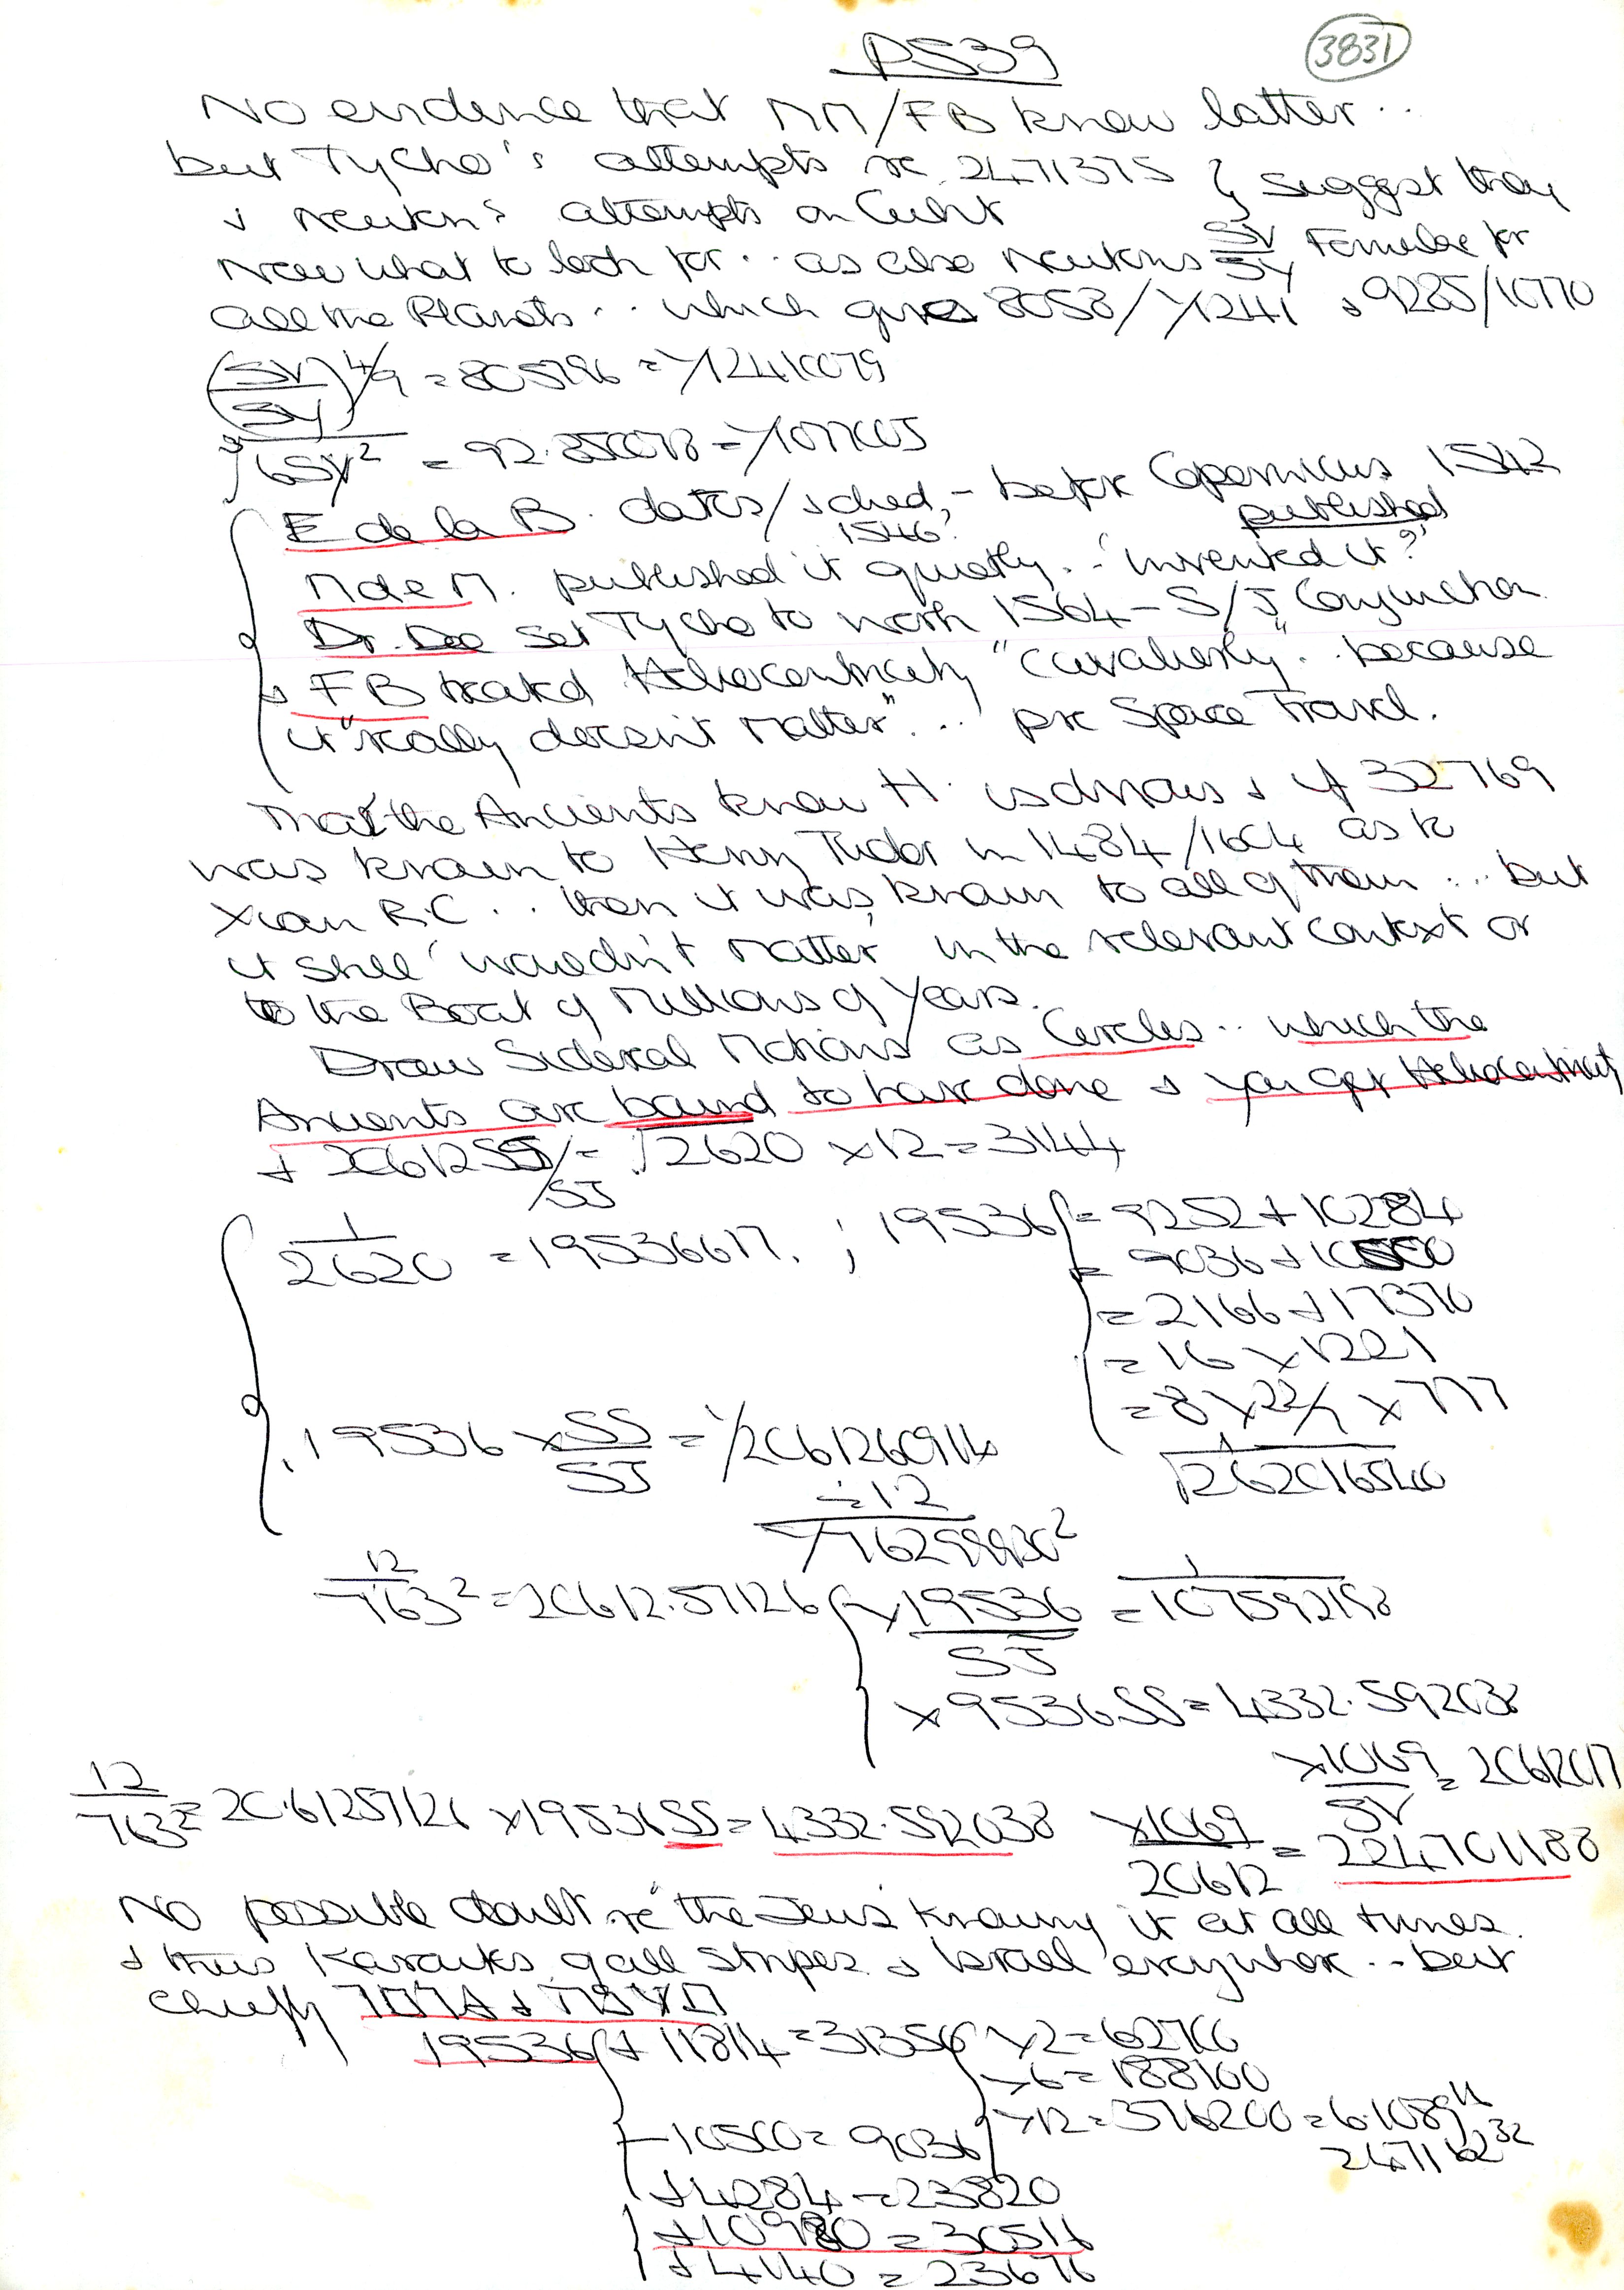 PS39
3831
No evidence that MM/FB knew latter..
but Tycho's attempts re. 2471375 } suggest they
+ Newton's attempts on Cubit
knew what to look for.. as also Newtons SV/SY Formulae for
all the Planets.. which gives 8058/ 1/1241 + 9285/10770
(SV/SY)4/9 = 805796 = 1/12410079
65Y² = 92.850078 = 1/1077005
E de la B. dates/sched, - before Copernicus 1542
1546? published
M de M. published it quietly.. 'invented it?'
Dr. Dee set Tycho to work 1564 - S/J Conjunction
+ FB treated Heliocentricity "Cavalierly".. because
it "really doesn't matter"... pre Space Travel.
That the Ancients knew H. is obvious + if 32769
was known to Henry Tudor in 1484/1604 as to
Xian R.C... then it was known to all of them... but
it still 'wouldn't matter' in the relevant context or
to the Boat of Millions of Years.
Draw Sidereal Motions as Circles.. which the
Ancients are bound to have done + you get Heliocentricity
+ 206125SS/SJ = √2620 × 12 = 3144
1/2620 = 19536617. ; 19536 = 9252 + 10284
= 9036 + 10500
= 2166 + 17370
= 16 × 1221
= 8 × 22/7 × 777
.19536 × SS/SJ = 1/206126091
1/√262016540
÷12
12/763² = 20612.57126 × 19536/SJ = 1/107592158
× 9536 SS = 4332.592038
× 1069/SV = 2061207
12/763² = 20.61257126 × 19536 SS = 4332.592038 × 1069/20612 = 224701188
No possible doubt re "the Jews" knowing it at all times.
+ thus Karaites of all stripes + Israel everywhere.. but
chiefly
19536 + 11814 = 31350 × 2 = 62700
× 6 = 188100
× 12 = 376200 = 6.1089
- 10500 = 9036
+ 4284 = 23820
+ 10980 = 30516
+ 4140 = 23676